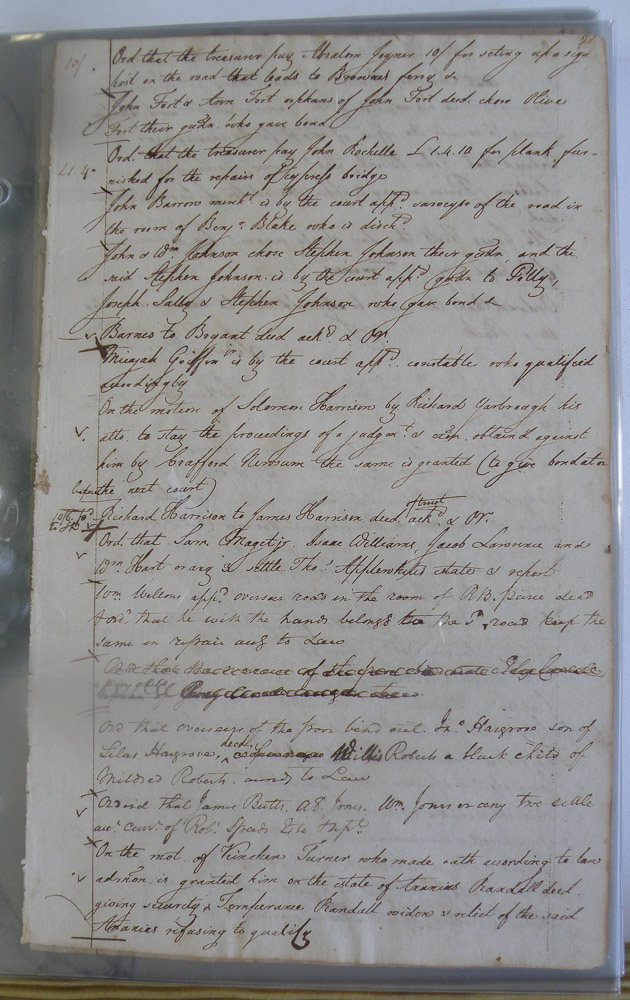 21
10/. Ord. that the treasurer pay Absalom Joyner 10/ for seting up a sign
post on the road that leads to Browns ferry &
John Fort & Ann Fort orphans of John Fort decd. chose Olive
Fort their gudn. who gave bond
£1.4. Ord. that the treasurer pay John Rochelle £1.4.10 for plank fur-
nished for the repairs of Cypress bridge
John Barrow mercht. is by the court appd. surveyor of the road in
the room of Benjn. Blake who is dischd.
John & Wm Johnson chose Stephen Johnson their gudn, and the
said Stephen Johnson is by the court appd. gudn to Polly,
Joseph, Sally & Stephen Johnson who gave bond &
Barnes to Bryant deed ackd. & Or.
Micajah Griffin jr. is by the court appd. constable who qualified
accordingly
On the motion of Solomon Harrison by Richard Yarbrough his
atto. to stay the proceedings of a judgmt. & obtained against
him by Crafford Newsum the same is granted (to give bond at or
before the next court)
Richard Harrison to James Harrison deed of trust ackd. & Or.
Ord. that Saml. Maget jr. Isaac Williams, Jacob Lawrence and
Wm. Hart or any 2 settle Thos. Applewhites estate & report
Wm. Wellons appd. overseer road in the room of
& ord. that he with the hands belongg to the sd. road keep the
same in repair accg to Law
Ord that the overseers of the poor
Ord that overseers of the poor bind out Jno. Hargrove son of
Silas Hargrove, decd. Willis Roberts a black child of
Mildred Roberts accordg to Law
Ordered that James Butts, A. E. Jones, Wm. Jones or any two settle
acct. curt. of Rob. Speeds Est. & rept.
On the mot. of Kinchen Turner who made oath according to law
admōn is granted him on the estate of Ananias Randall decd.
giving security, Temperance Randall widow & relict of the said
Ananias refusing to qualify